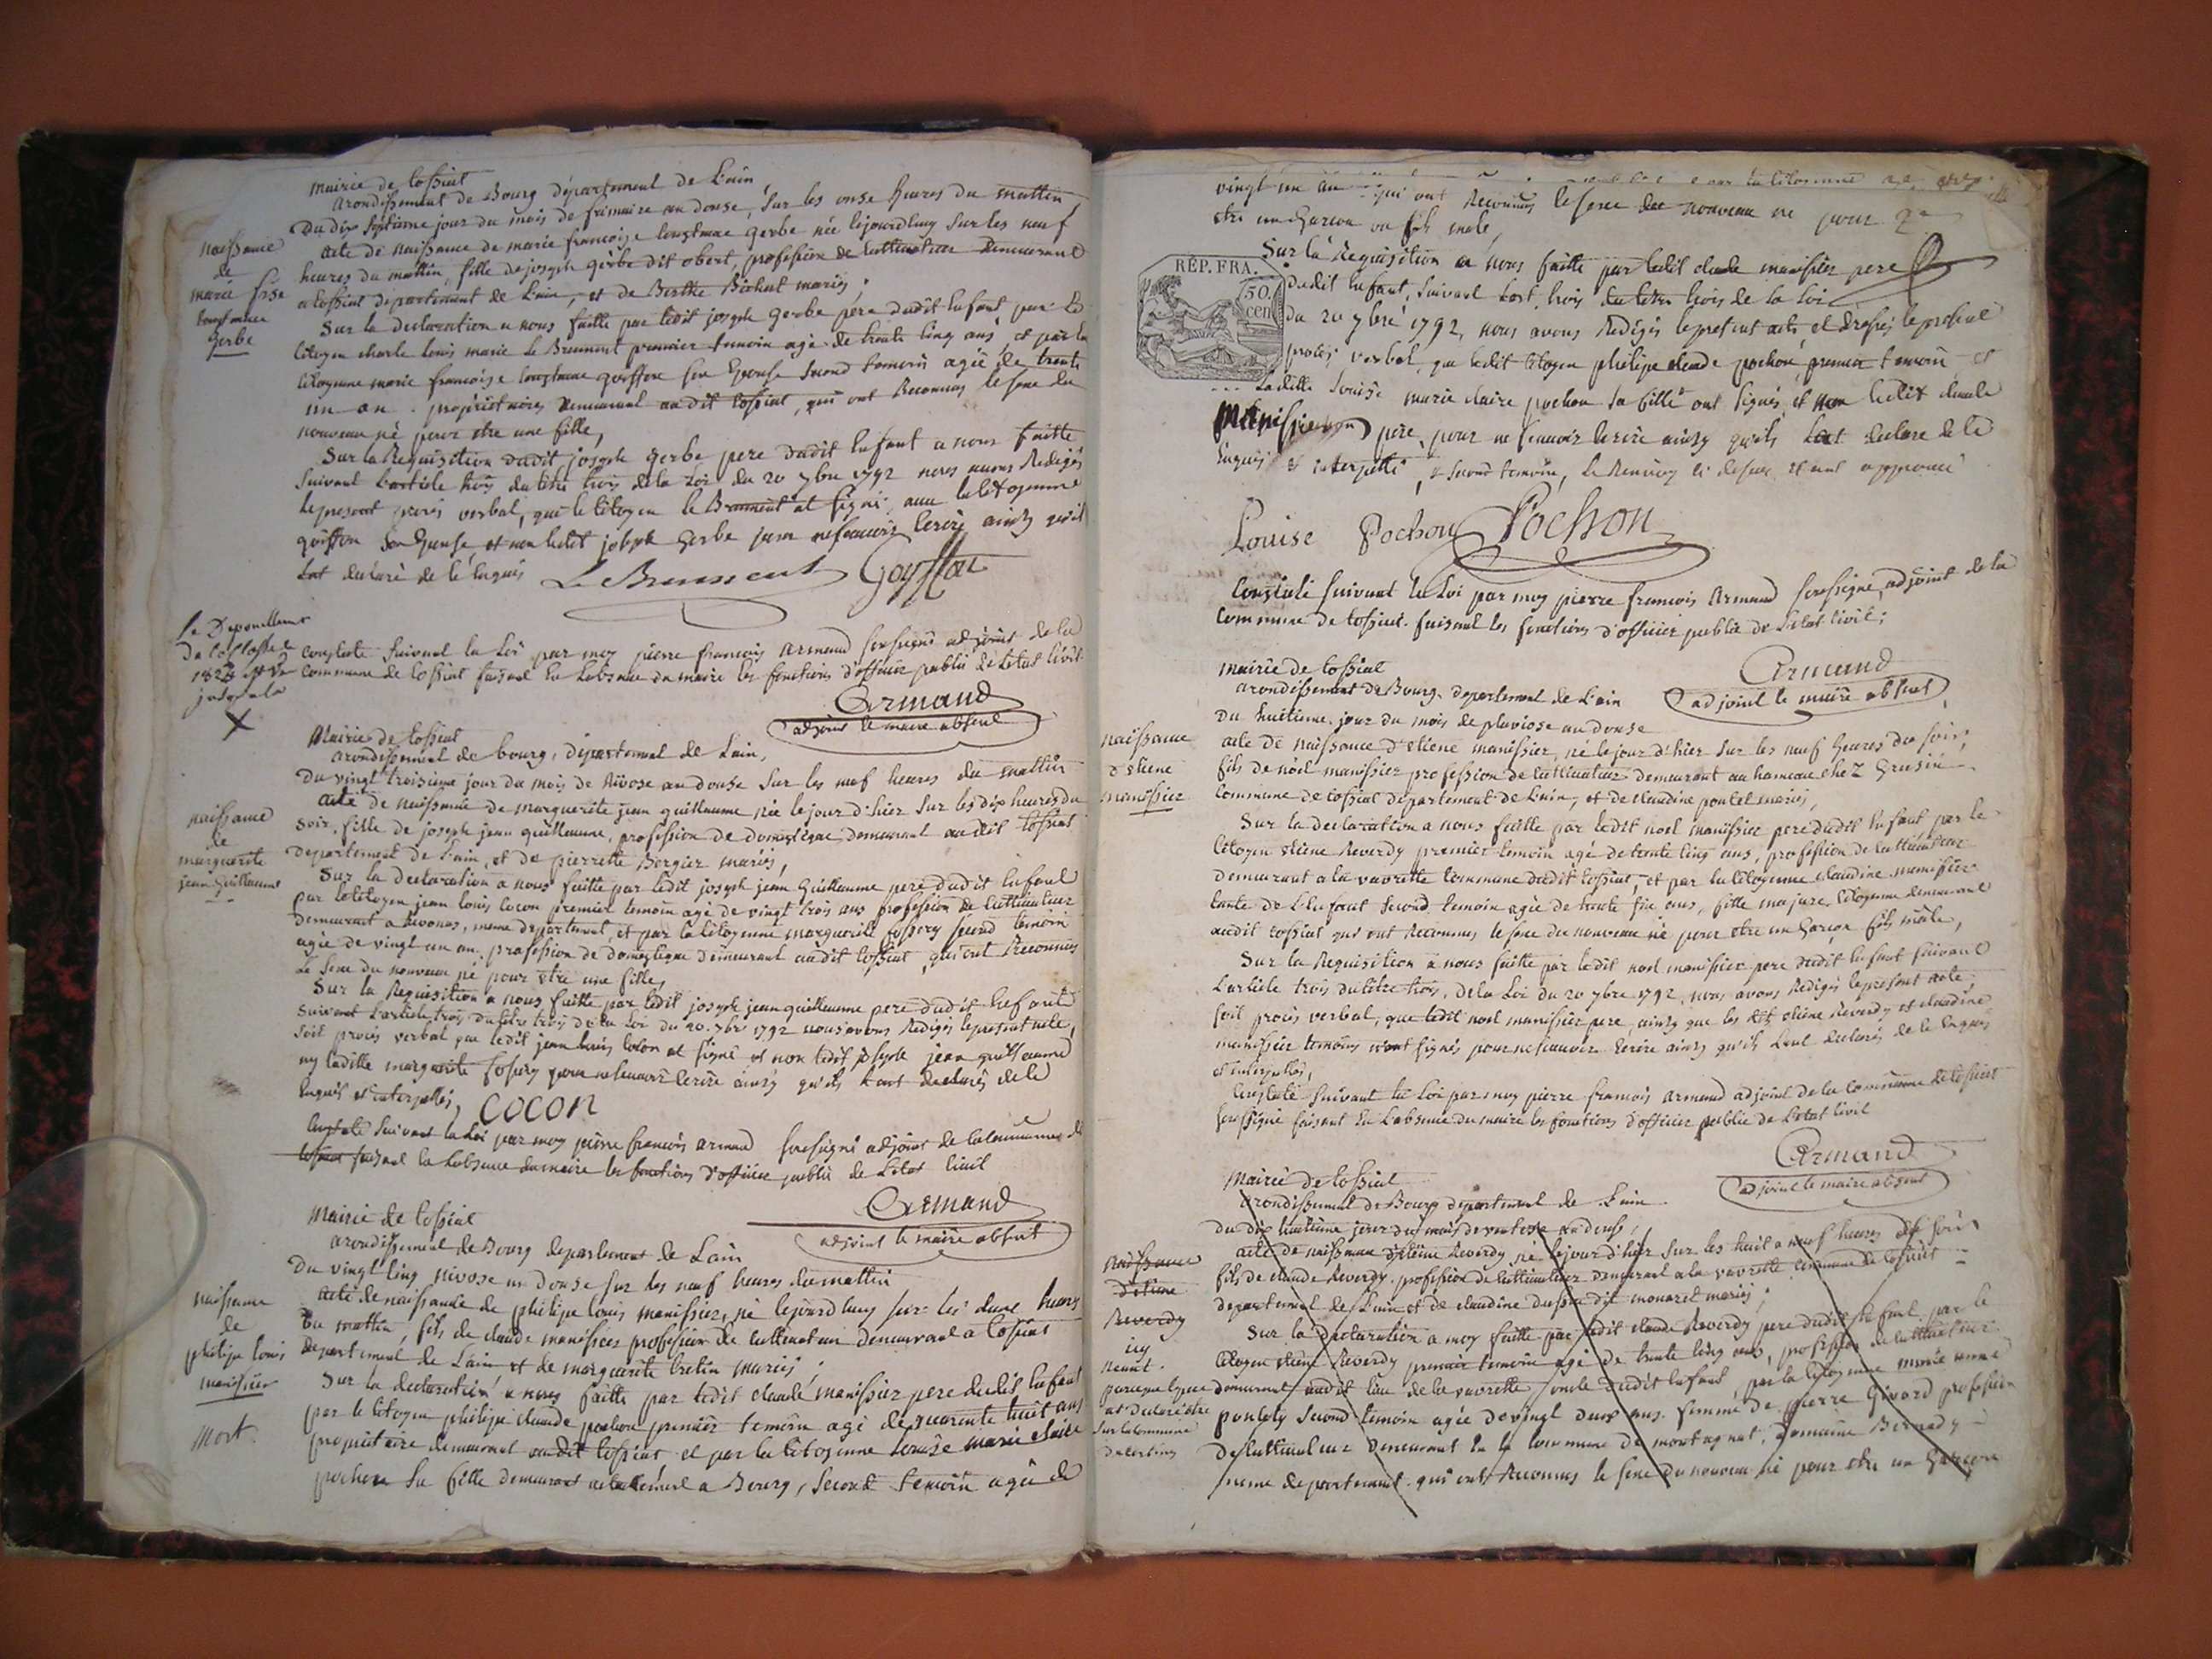 mairie de Cossiat
arondissement de Bourg département de L'ain
Du dix septieme jour du mois de frimaire an douse, sur les onse heures du mattin,
naissance
de
marie frse
Constance
Gerbe
acte de naissance de marie francoise Constance gerbe née cejourdhuy sur les neuf
heures du mattin, fille de joseph gerbe dit obert, profession de cultivateur demeurant
a Cossiat département de L'ain, et de Berthe Bichat mariés;
Sur la declaration a nous faitte par ledit joseph gerbe pere dudit Enfant, par le
Citoyen charle Louis marie Le Brument premier temoin agé de trente cinq ans, et par la
Citoyenne marie francoise Constance goiffon son Epouse second temoin agée de trente
un an. propriétaires demeurant audit Cossiat, qui ont Reconnus le sexe du
nouveau né pour etre une fille,
Sur la Requisition dudit joseph gerbe pere dudit Enfant a nous faitte
suivant L'article trois du titre trois de la Loi du 20 7bre 1792 nous avons Redigés
le present procès verbal, que le Citoyen le Brument at signé, avec la Citoyenne
goiffon son Epouse, et non ledit joseph Gerbe pour ne scavoir Ecrire ainsy qu'il
L'at declaré de Ce Enquis Le Brument Goyffon
constaté suivant la Loi par moy pierre francois Armand soussigné adjoint de la
commune de Cossiat faisant En L'absence du maire les fonctions d'officier public de L'etat Civil.
Armand
adjoint le maire absent
Mairie de Cossiat
arondissement de bourg, département de L'ain,
Du vingt troisieme jour du mois de Nivose an douse sur les neuf heures du mattin
naissance
de
marguerite
jean Guillaume
acte de naissance de marguerite jean guillaume née le jour d'hier sur les dix heures du
soir, fille de joseph jean guillaume, profession de domestique demeurant audit Cossiat
departement de L'ain, et de pierrette Borgier mariés,
Sur la declaration a nous faitte par ledit joseph jean Guillaume pere dudit Enfant
par le Citoyen jean louis cocon premier temoin agé de vingt trois ans profession de Cultivateur
demeurant a Rivonas, meme departement, et par la Citoyenne marguerite fossery second temoin
agée de vingt un an. profession de domestique demeurant audit Cossiat, qui ont Reconnus
Le sexe du nouveau né pour etre une fille,
Sur la Requisition a nous faitte par ledit joseph jean guillaume pere dudit Enfant
suivant L'article trois du titre trois de la Loi du 20. 7bre 1792 nous avons Redigés le present acte,
soit procès verbal que ledit jean louis Cocon at signé et non ledit joseph jean guillaume
ny laditte marguerite fossery pour ne scavoir Ecrire ainsy qu'ils L'ont declarés de Ce
Enquis et interpellés, COCON
Constaté suivant la Loi par moy pierre francois armand soussigné adjoint de la Commune de
Cossiat faisant En L'absence du maire les fonctions d'officier public de L'etat Civil
Armand
adjoint le maire absent
Mairie de Cossiat
arondissement de Bourg departement de L'ain
Du vingt Cinq nivose an douse sur les neuf heures du mattin
naissance
de
philipe louis
manissier
mort.
acte de naissance de philipe louis manissier, né cejourdhuy sur les deux heures
du mattin, fils de claude manissier profession de cultivateur demeurant a Cossiat
departement de L'ain et de marguerite bretin mariés;
Sur la declaration a nous faitte par ledit claude manissier pere dudit Enfant
par le Citoyen philipe claude pochon premier temoin agé de quarante huit ans
propriétaire demeurant audit Cossiat et par la Citoyenne Louise marie claire
pochon sa fille demeurant actuellement a Bourg, second temoin agée de
vingt un an qui ont Reconnus le sexe du nouveau né pour
etre un Garcon ou fils male,
Sur la Requisition a nous faitte par ledit claude manissier pere
RÉP. FRA.
50.
cen
dudit Enfant, suivant L'art. trois du titre trois de la Loi
du 20 7bre 1792, nous avons Redigés le present acte et dressés le present
procès verbal, que ledit Citoyen philipe claude pochon, premier temoin et
Laditte Louise marie claire pochon sa fille ont signés, et non ledit claude
Manissier pere, pour ne scavoir Ecrire ainsy qu'ils L'at declaré de Ce
Enquis et interpellé, second temoin, Le Renvoy ci dessus etant approuvé
Louise Pochon Pochon
Constaté suivant la Loi par moy pierre francois Armand soussigné, adjoint de la
Commune de Cossiat. faisant les fonctions d'officier public de L'etat Civil;
Armand
adjoint le maire absent
mairie de Cossiat
arondissement de Bourg. departement de L'ain
Du huitieme jour du mois de pluviose an douse
naissance
d'Etiene
manissier
acte de naissance d'Etiene manissier, né le jour d'hier sur les neuf heures du soir,
fils de noël manissier profession de Cultivateur demeurant au hameau chez Grusin
Commune de Cossiat département de L'ain, et de claudine pontet mariés,
Sur la declaration a nous faitte par ledit noel manissier pere dudit Enfant par le
Citoyen Etiene Reverdy premier temoin agé de trente cinq ans, profession de Cultivateur
demeurant a la vavrette Commune dudit Cossiat, et par la Citoyenne claudine manissier
tante de L'Enfant second temoin agée de trente six ans, fille majure, Citoyenne demeurant
audit Cossiat qui ont Reconnus le sexe du nouveau né pour etre un Garçon fils mâle,
Sur la Requisition a nous faitte par ledit noel manissier pere dudit Enfant suivant
L'article trois du titre trois, de la Loi du 20 7bre 1792, nous avons Redigés le present acte
soit procès verbal, que ledit noel manissier pere, ainsy que les dts Etiene Reverdy et claudine
manissier temoins n'ont signés pour ne scavoir Ecrire ainsy qu'ils L'ont declarés de Ce Enquis
et interpellés,
Constaté suivant la Loi par moy pierre francois Armand adjoint de la Commune de Cossiat
soussigné faisant En L'absence du maire les fonctions d'officier public de L'etat Civil
Armand
adjoint le maire absent
Mairie de Cossiat
arondissement de Bourg departement de L'ain
du dix huitieme jour du mois de ventose an douse,
Naissance
d'Etiene
Reverdy
icy
neant.
acte de naissance d'Etiene Reverdy né le jour d'hier sur les huit a neuf heures du soir
fils de claude Reverdy. profession de Cultivateur demeurant a la vavrette Commune de Cossiat
departement de L'ain et de claudine dit monaret mariés;
Sur la declaration a moy faitte par ledit claude Reverdy pere dudit Enfant par le
Citoyen Etiene Reverdy premier temoin agé de trente cinq ans, profession de Cultivateur
demeurant audit lieu de la vavrette, oncle dudit Enfant, par la Citoyenne marie anne
second temoin agée de vingt deux ans. femme de pierre Givord profession
de Cultivateur demeurant En la Commune de montagnat, Domaine
meme departement. qui ont Reconnus le sexe du nouveau né pour etre un Garçon